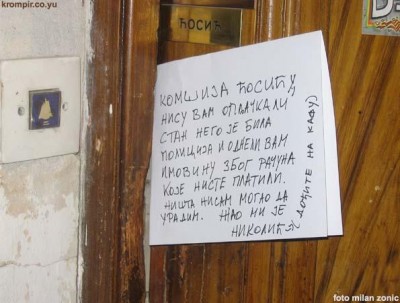 krompir.co.yu
ЋОСИЋ
КОМШИЈА ЋОСИЋУ
НИСУ ВАМ ОПЉАЧКАЛИ
СТАН НЕГО ЈЕ БИЛА
ПОЛИЦИЈА И ОДНЕЛИ ВАМ
ИМОВИНУ ЗБОГ РАЧУНА
КОЈЕ НИСТЕ ПЛАТИЛИ.
НИШТА НИСАМ МОГАО ДА
УРАДИМ. ЖАО МИ ЈЕ
НИКОЛИЋ
ДОЂИТЕ НА КАФУ)
foto milan zonic